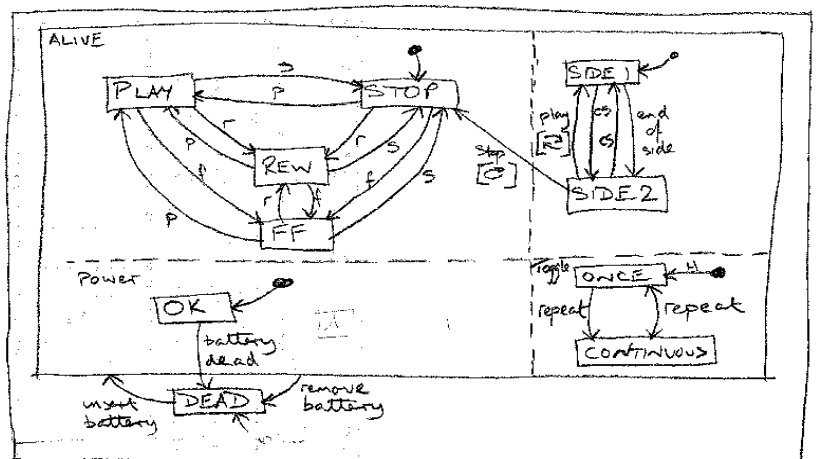 ALIVE
PLAY
s
p
STOP
r
p
f
p
REW
r
s
f
s
r
f
FF
stop
SIDE 1
play
cs
cs
end
of
side
SIDE 2
Power
OK
battery
dead
DEAD
insert
battery
remove
battery
Toggle
ONCE
H
repeat
repeat
CONTINUOUS